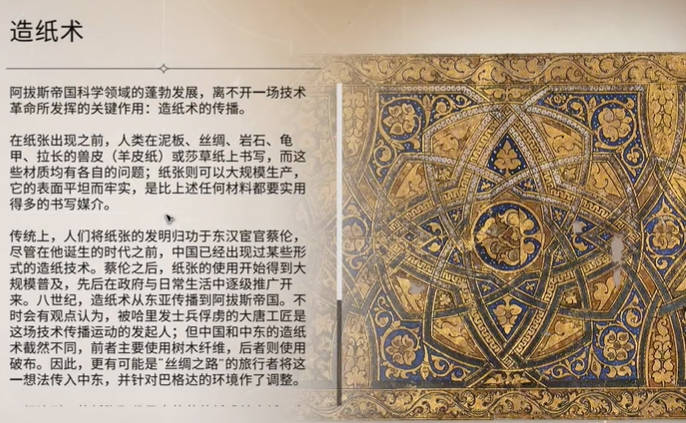 造纸术
阿拔斯帝国科学领域的蓬勃发展，离不开一场技术
革命所发挥的关键作用：造纸术的传播。
在纸张出现之前，人类在泥板、丝绸、岩石、龟
甲、拉长的兽皮（羊皮纸）或莎草纸上书写，而这
些材质均有各自的问题；纸张则可以大规模生产，
它的表面平坦而牢实，是比上述任何材料都要实用
得多的书写媒介。
传统上，人们将纸张的发明归功于东汉宦官蔡伦，
尽管在他诞生的时代之前，中国已经出现过某些形
式的造纸技术。蔡伦之后，纸张的使用开始得到大
规模普及，先后在政府与日常生活中逐级推广开
来。八世纪，造纸术从东亚传播到阿拔斯帝国。不
时会有观点认为，被哈里发士兵俘虏的大唐工匠是
这场技术传播运动的发起人；但中国和中东的造纸
术截然不同，前者主要使用树木纤维，后者则使用
破布。因此，更有可能是“丝绸之路”的旅行者将这
一想法传入中东，并针对巴格达的环境作了调整。